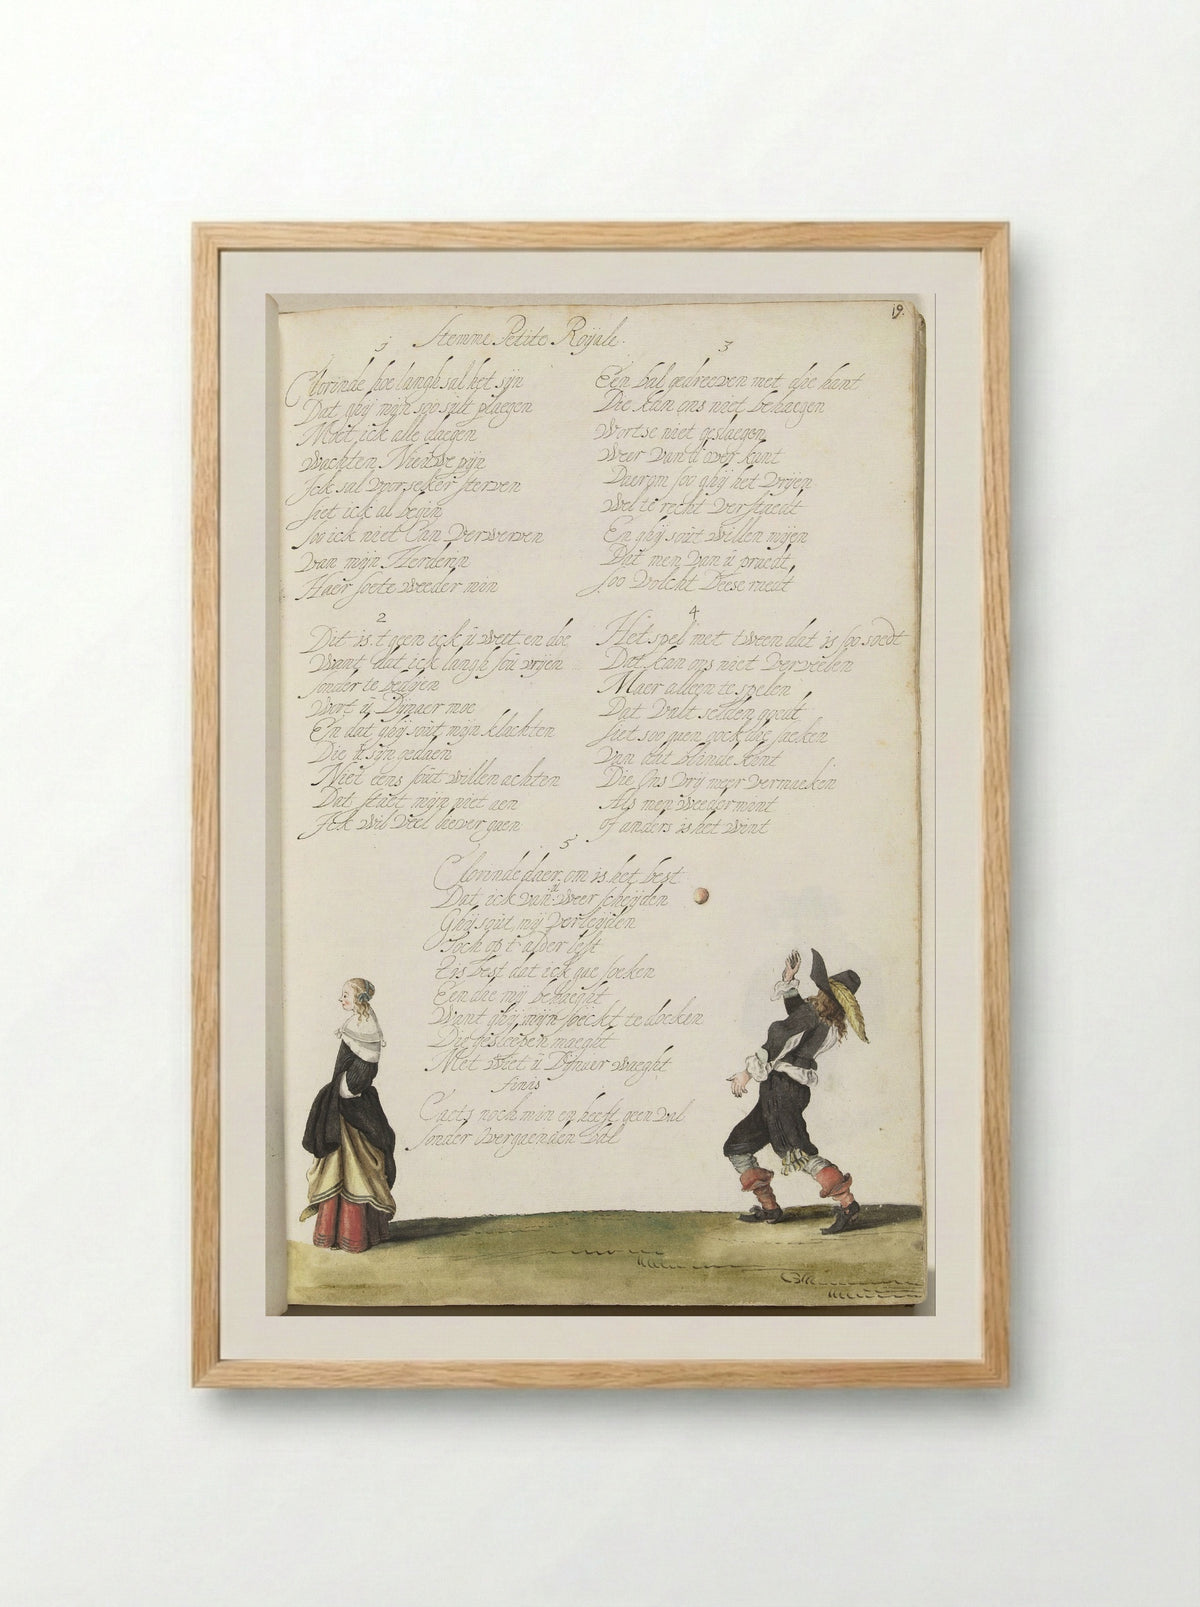 19.
Stemme Petite Royale.
1
Clorinde hoe langh sal het sijn
Dat ghij mijn soo sult plaegen
Moet ick alle daegen
wachten Nieuwe pijn
Ick sal voorseker sterven
soet ick al begin
soo ick niet Can verwerven
van mijn Herderin
Haer soete weeder min
2
Dit is t geen ick u weet en doe
Want dat ick langh sou vrijen
sonder te bedijen
Wort u Dijnaer moe
En dat ghij sout mijn klachten
Die u sijn gedaen
Niet eens sout willen achten
Dat staet mijn niet aen
Ick wil veel liever gaen
3
Een bal gedreeven met die hant
Die kan ons niet behaegen
Wortse niet geslaegen
Weer van d over kant
Daerom soo ghij het vrijen
Wel te recht verstaedt
En ghij sout willen mijen
Dat men van u praedt,
soo volcht Deese raedt
4
Het spel met tween dat is soo soedt
Dat kan ons niet verveelen
Maer alleen te speelen
Dat valt selden goedt
siet soo gaen oock die saeken
van het blinde kint
Die ons vrij meer vermaeken
Als men weedermint
of anders is het wint
5
Clorinde daer om is het best
Dat ick van u weer scheijden
Ghij sout mij verleijden
Toch op t alder lest
Tis best dat ick gae soeken
Een die mij behaeght
Want ghij mijn soeckt te doeken
Die geslepen maeght
Met Wiet u Dijnaer waeght
finis
Caets noch min en heeft geen val
sonder overgaenden bal